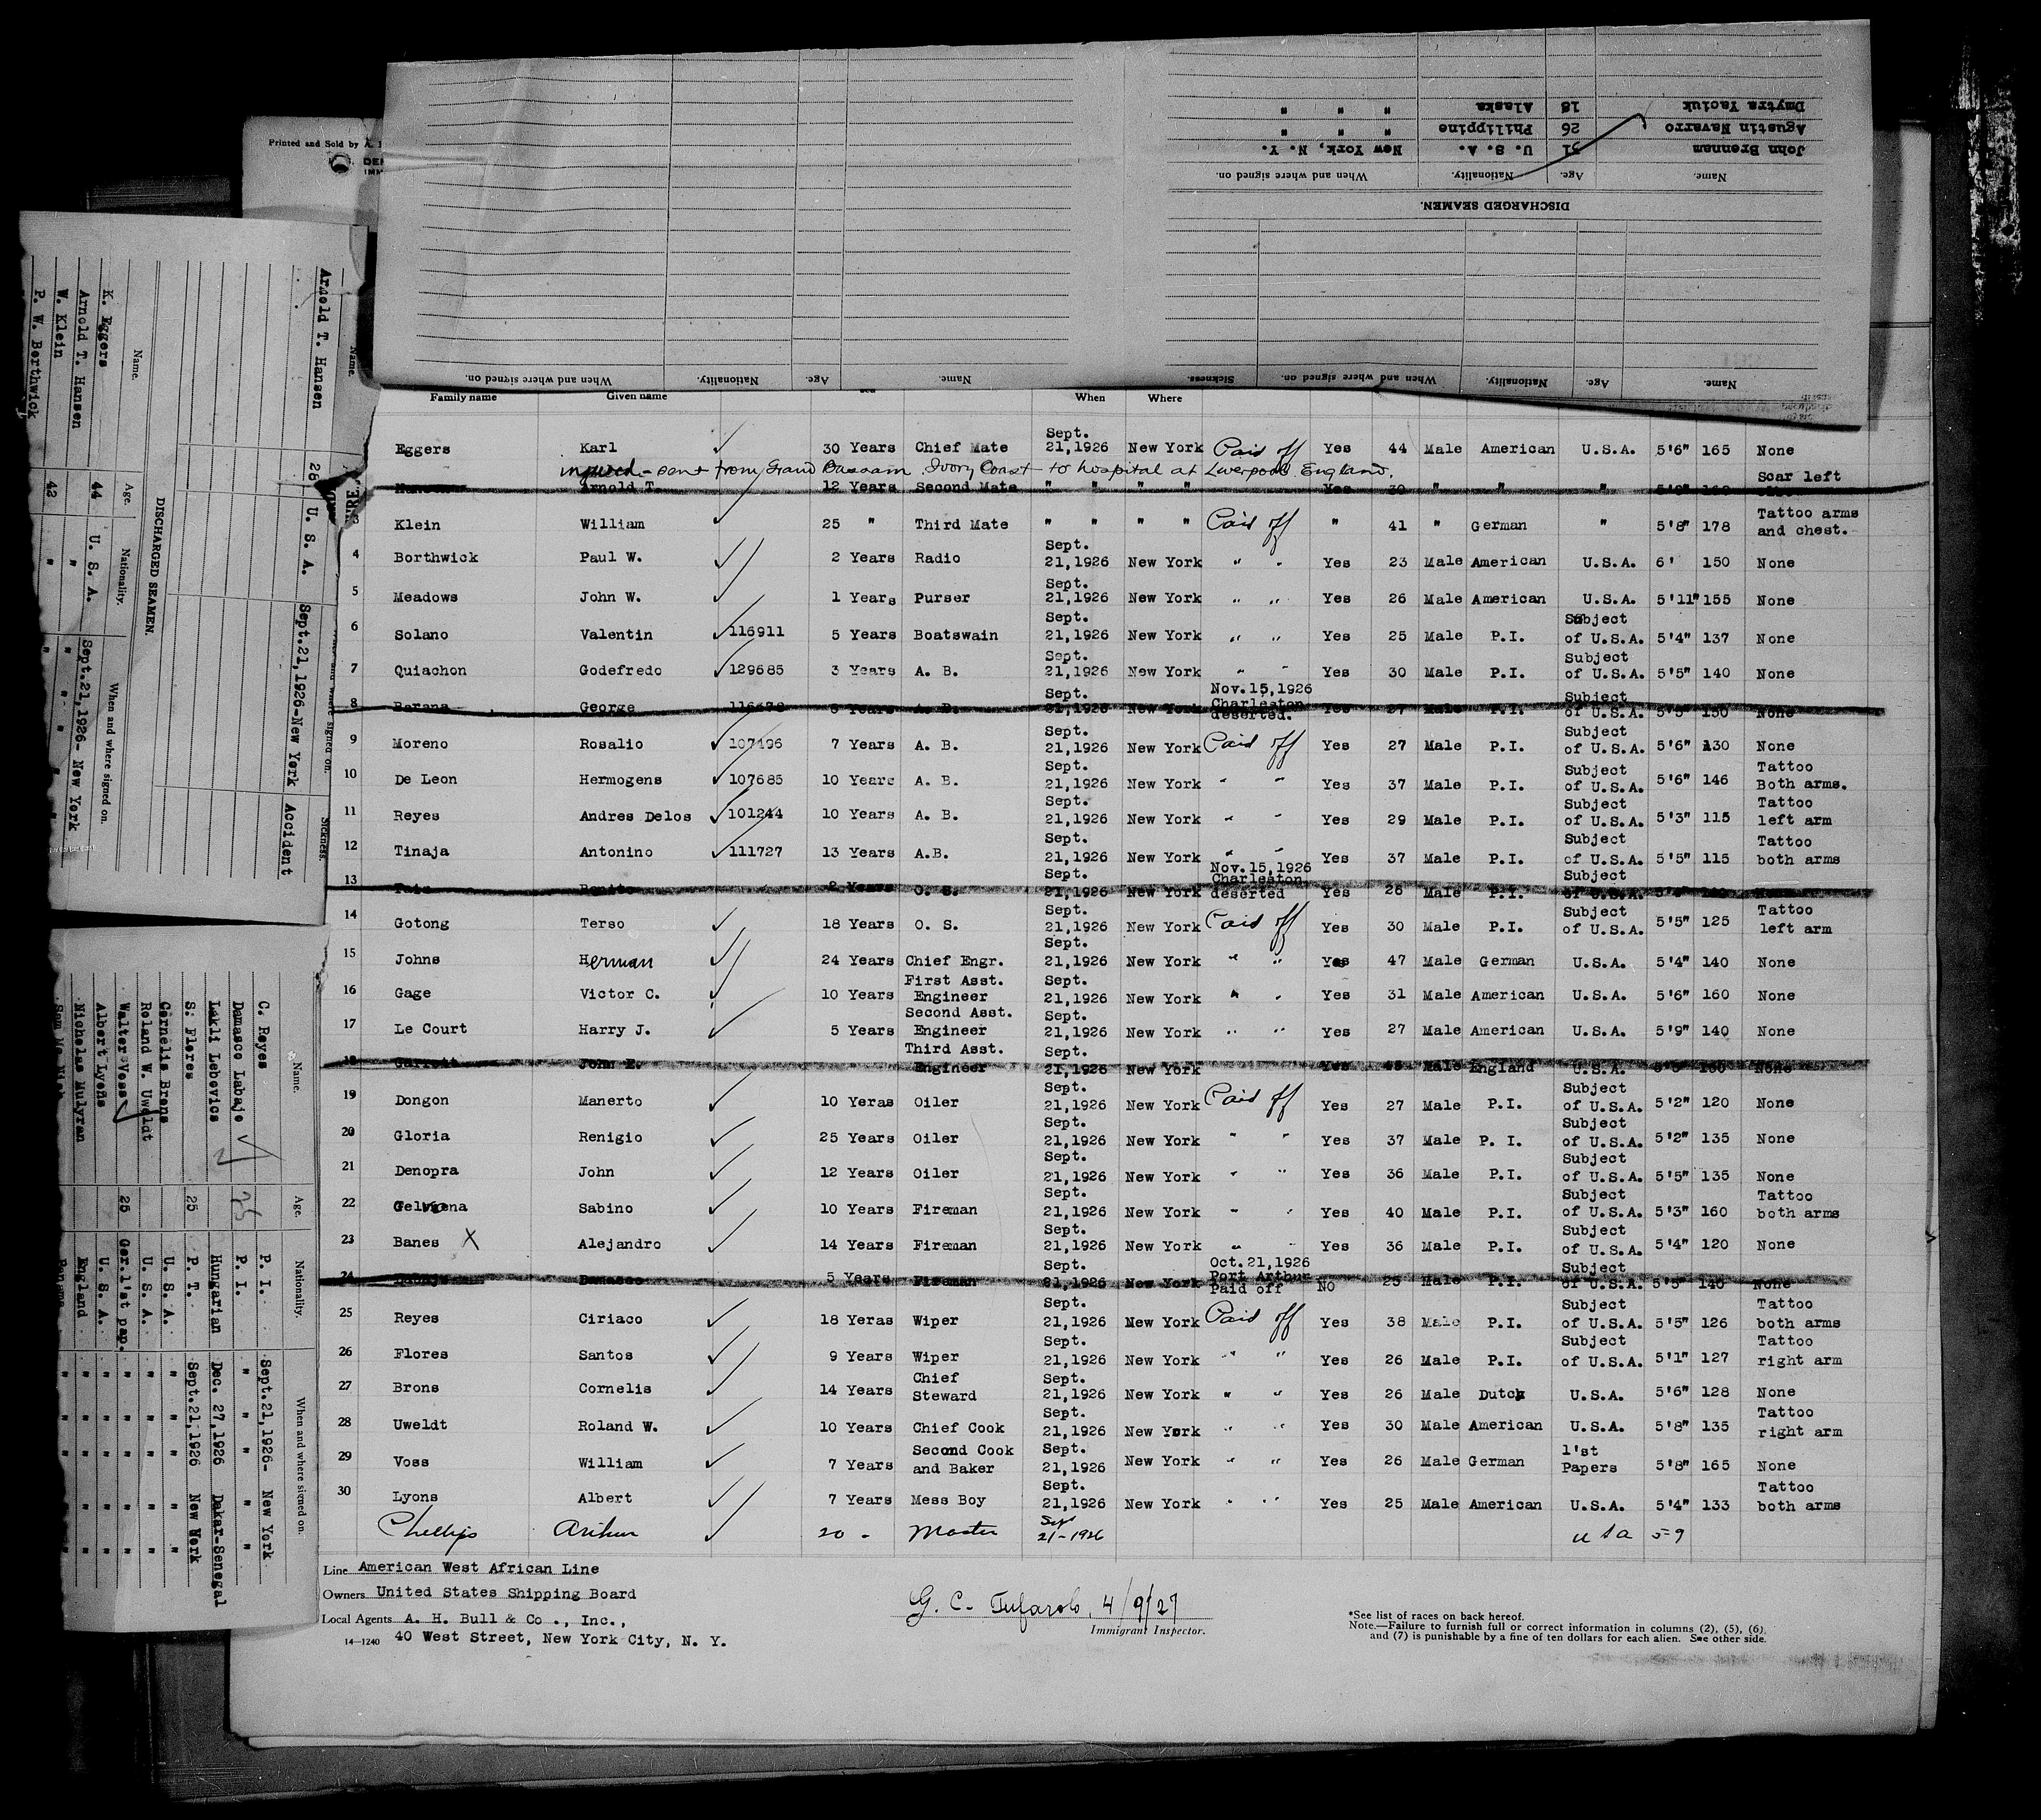 Printed and Sold by A.
DISCHARGED SEAMEN.
Name. Age. Nationality. When and where signed on.
John Brennam 31 U. S. A. New York, N. Y.
Agustin Navarro 26 Philippine " " "
Dmytra Yaciuk 18 Alaska " " "
Name. Age. Nationality. When and where signed on. Sickness. Name. Age. Nationality. When and where signed on.
Name. When and where signed on. Sickness.
Arnold T. Hansen 28 U. S. A. Sept.21,1926-New York Accident
DISCHARGED SEAMEN.
Name. Age. Nationality. When and where signed on.
K. Eggers 44 U. S. A. Sept.21,1926- New York
Arnold T. Hansen " " "
W. Klein 42 " " "
P. W. Borthwick
Name. Age. Nationality. When and where signed on.
C. Reyes P. I. Sept.21,1926- New York
Damasco Labaje 25 P. I. " " "
Lakli Lebovics Hungarian Dec. 27,1926 Dakar-Senegal
S. Flores 25 P. T. Sept.21,1926 New York
Cornelis Brons U. S. A. " " "
Roland W. Uweldt U. S. A. " " "
Walter Voss 25 Ger.1'st pap. " " "
Albert Lyons U. S. A. " " "
Nicholas Mulyran England " " "
Family name Given name When Where
Eggers Karl 30 Years Chief Mate Sept. 21,1926 New York Paid off Yes 44 Male American U.S.A. 5'6" 165 None
injured - sent from Grand Bassam Ivory Coast to hospital at Liverpool England.
Arnold T. 12 Years Second Mate " " " " Yes 30 " " " Scar left
3 Klein William 25 " Third Mate " " " " Paid off " 41 " German " 5'8" 178 Tattoo arms and chest.
4 Borthwick Paul W. 2 Years Radio Sept. 21,1926 New York " " Yes 23 Male American U.S.A. 6' 150 None
5 Meadows John W. 1 Years Purser Sept. 21,1926 New York " " Yes 26 Male American U.S.A. 5'11" 155 None
6 Solano Valentin 116911 5 Years Boatswain Sept. 21,1926 New York " " Yes 25 Male P.I. Subject of U.S.A. 5'4" 137 None
7 Quiachon Godefredo 129685 3 Years A. B. Sept. 21,1926 New York " " Yes 30 Male P.I. Subject of U.S.A. 5'5" 140 None
8 Barana George A. B. Sept. 21,1926 New York Nov.15,1926 Charleston deserted. Yes 27 Male P.I. Subject of U.S.A. 5'5" 150 None
9 Moreno Rosalio 107196 7 Years A. B. Sept. 21,1926 New York Paid off Yes 27 Male P.I. Subject of U.S.A. 5'6" 130 None
10 De Leon Hermogens 107685 10 Years A. B. Sept. 21,1926 New York " " Yes 37 Male P.I. Subject of U.S.A. 5'6" 146 Tattoo Both arms.
11 Reyes Andres Delos 101244 10 Years A. B. Sept. 21,1926 New York " " Yes 29 Male P.I. Subject of U.S.A. 5'3" 115 Tattoo left arm
12 Tinaja Antonino 111727 13 Years A.B. Sept. 21,1926 New York " " Yes 37 Male P.I. Subject of U.S.A. 5'5" 115 Tattoo both arms
13 Benito 2 Years O. S. Sept. 21,1926 New York Nov.15,1926 Charleston deserted Yes 26 Male P.I. Subject of U.S.A.
14 Gotong Terso 18 Years O. S. Sept. 21,1926 New York Paid off Yes 30 Male P.I. Subject of U.S.A. 5'5" 125 Tattoo left arm
15 Johns Herman 24 Years Chief Engr. Sept. 21,1926 New York " " Yes 47 Male German U.S.A. 5'4" 140 None
16 Gage Victor C. 10 Years First Asst. Engineer Sept. 21,1926 New York " " Yes 31 Male American U.S.A. 5'6" 160 None
17 Le Court Harry J. 5 Years Second Asst. Engineer Sept. 21,1926 New York " " Yes 27 Male American U.S.A. 5'9" 140 None
18 Garrett John E. " Third Asst. Engineer Sept. 21,1926 New York Yes Male England U.S.A. None
19 Dongon Manerto 10 Yeras Oiler Sept. 21,1926 New York Paid off Yes 27 Male P.I. Subject of U.S.A. 5'2" 120 None
20 Gloria Renigio 25 Years Oiler Sept. 21,1926 New York " " Yes 37 Male P. I. Subject of U.S.A. 5'2" 135 None
21 Denopra John 12 Years Oiler Sept. 21,1926 New York " " Yes 36 Male P.I. Subject of U.S.A. 5'5" 135 None
22 Sabino 10 Years Fireman Sept. 21,1926 New York " " Yes 40 Male P.I. Subject of U.S.A. 5'3" 160 Tattoo both arms
23 Banes X Alejandro 14 Years Fireman Sept. 21,1926 New York " " Yes 36 Male P.I. Subject of U.S.A. 5'4" 120 None
24 Damasco 5 Years Fireman Sept. 21,1926 New York Oct.21,1926 Port Arthur Paid off NO 25 Male P.I. Subject of U.S.A. 5'5" 140 None
25 Reyes Ciriaco 18 Yeras Wiper Sept. 21,1926 New York Paid off Yes 38 Male P.I. Subject of U.S.A. 5'5" 126 Tattoo both arms
26 Flores Santos 9 Years Wiper Sept. 21,1926 New York " " Yes 26 Male P.I. Subject of U.S.A. 5'1" 127 Tattoo right arm
27 Brons Cornelis 14 Years Chief Steward Sept. 21,1926 New York " " Yes 26 Male Dutch U.S.A. 5'6" 128 None
28 Uweldt Roland W. 10 Years Chief Cook Sept. 21,1926 New York " " Yes 30 Male American U.S.A. 5'8" 135 Tattoo right arm
29 Voss William 7 Years Second Cook and Baker Sept. 21,1926 New York " " Yes 26 Male German 1'st Papers 5'8" 165 None
30 Lyons Albert 7 Years Mess Boy Sept. 21,1926 New York " " Yes 25 Male American U.S.A. 5'4" 133 Tattoo both arms
Phellips Arthur 20 - Master Sept 21-1926 U S a 5-9
Line American West African Line
Owners United States Shipping Board
Local Agents A. H. Bull & Co ., Inc.,
14-1240 40 West Street, New York City, N. Y.
G. C. Tufarolo, 4/9/27
Immigrant Inspector.
*See list of races on back hereof.
Note.—Failure to furnish full or correct information in columns (2), (5), (6),
and (7) is punishable by a fine of ten dollars for each alien. See other side.